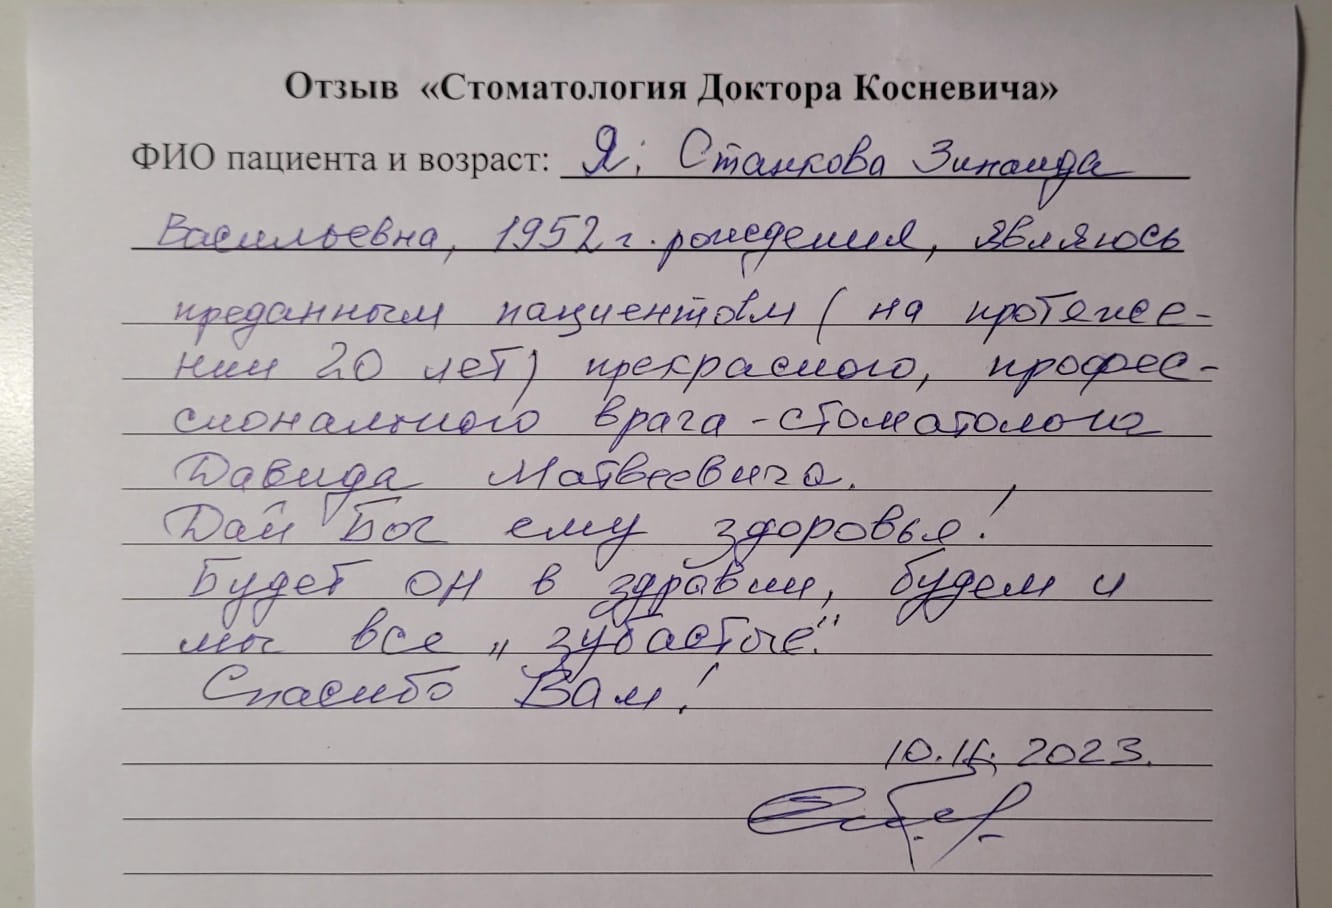 Отзыв «Стоматология Доктора Косневича»
ФИО пациента и возраст: Я; Станкова Зинаида
Васильевна, 1952 г. рождения, являюсь
преданным пациентом (на протяже-
нии 20 лет) прекрасного, профес-
сионального врага-стоматолога
Давида Матвеевича.
Дай Бог ему здоровья!
Будет он в здравии, будем и
мы все „зубастые".
Спасибо Вам!
10. 2023.